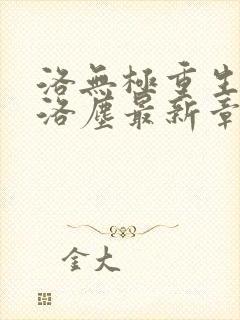 洛無極重生
洛塵最新章
金大